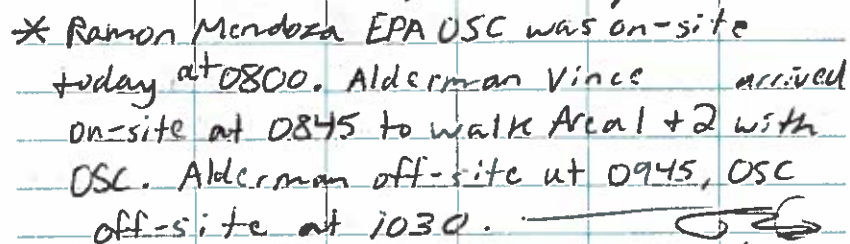 * Ramon Mendoza EPA OSC was on-site
today at 0800. Alderman Vince arrived
on-site at 0845 to walk Area 1 + 2 with
OSC. Alderman off-site at 0945, OSC
off-site at 1030.